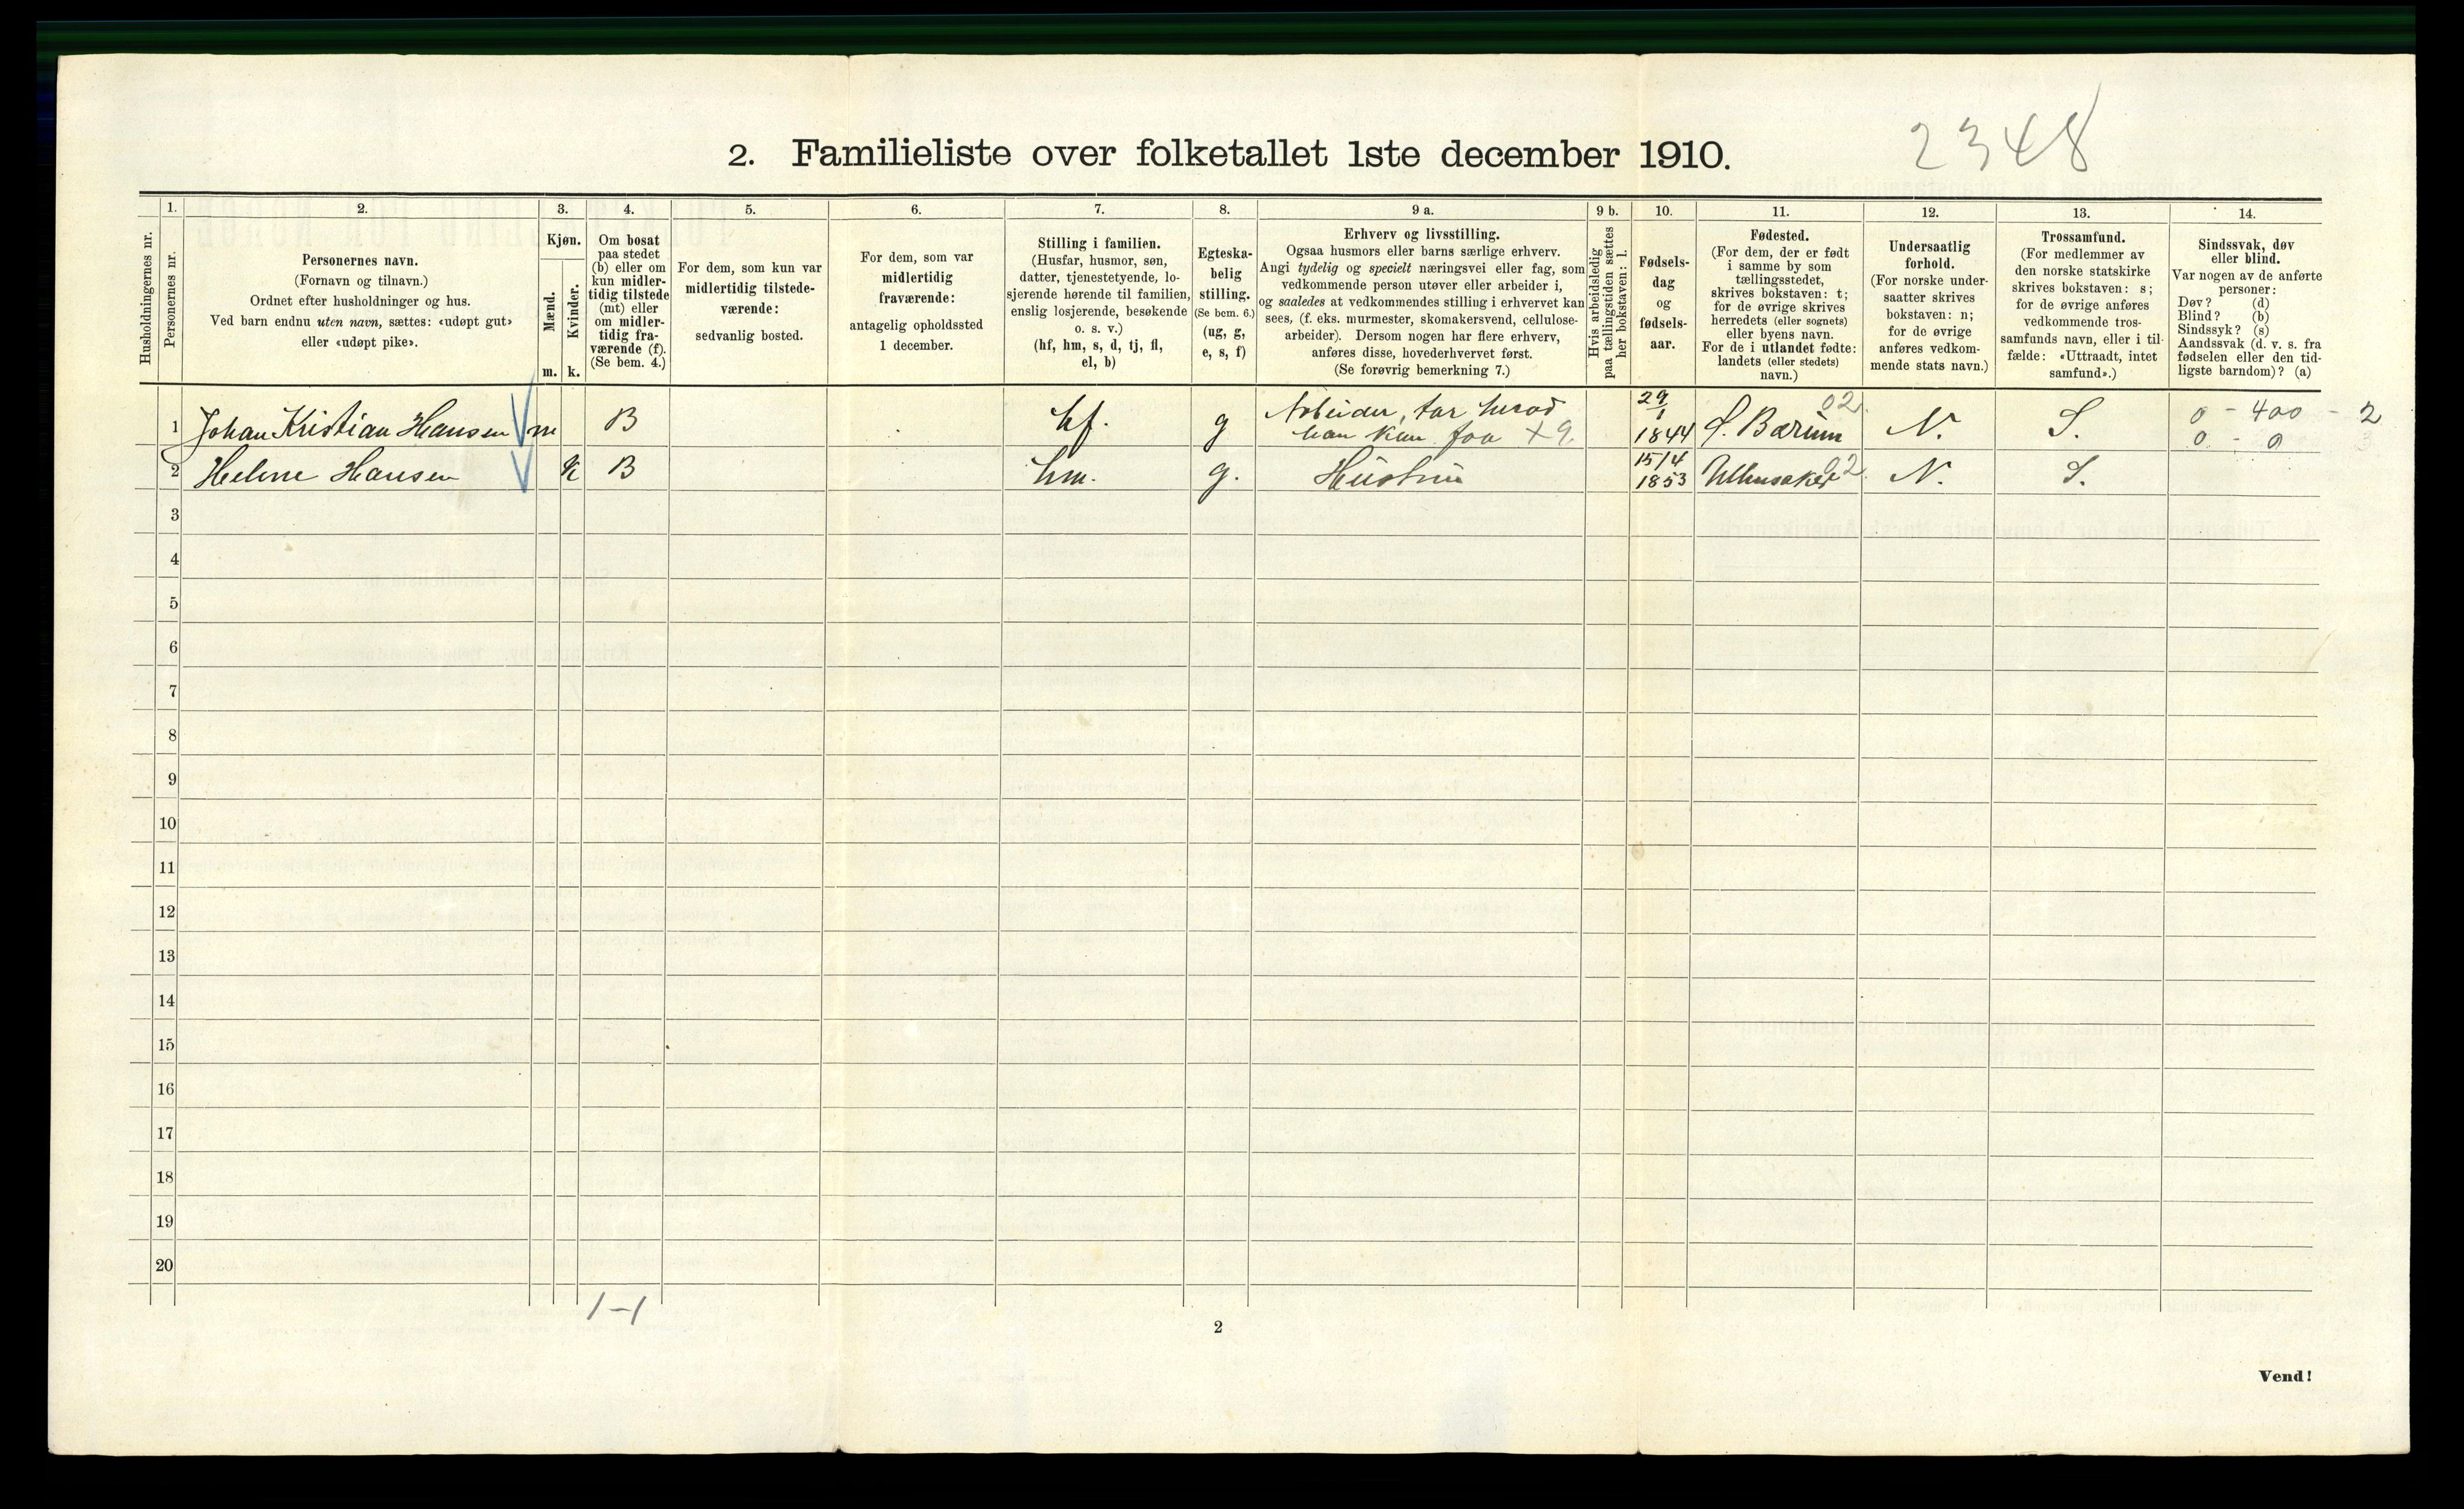 2348
2. Familieliste over folketallet 1ste december 1910.
Husholdningernes nr.
1.
Personernes nr.
2.
Personernes navn.
(Fornavn og tilnavn.)
Ordnet efter husholdninger og hus.
Ved barn endnu uten navn, sættes: «udøpt gut»
eller «udøpt pike».
3.
Kjøn.
Mænd.
m.
Kvinder.
k.
4.
Om bosat
paa stedet
(b) eller om
kun midler-
tidig tilstede
(mt) eller
om midler-
tidig fra-
værende (f).
(Se bem. 4.)
5.
For dem, som kun var
midlertidig tilstede-
værende:
sedvanlig bosted.
6.
For dem, som var
midlertidig
fraværende:
antagelig opholdssted
1 december.
7.
Stilling i familien.
(Husfar, husmor, søn,
datter, tjenestetyende, lo-
sjerende hørende til familien,
enslig losjerende, besøkende
o. s. v.)
(hf, hm, s, d, tj, fl,
el, b)
8.
Egteska-
belig
stilling.
(Se bem. 6.)
(ug, g,
e, s, f)
9 a.
Erhverv og livsstilling.
Ogsaa husmors eller barns særlige erhverv.
Angi tydelig og specielt næringsvei eller fag, som
vedkommende person utøver eller arbeider i,
og saaledes at vedkommendes stilling i erhvervet kan
sees, (f. eks. murmester, skomakersvend, cellulose-
arbeider). Dersom nogen har flere erhverv,
anføres disse, hovederhvervet først.
(Se forøvrig bemerkning 7.)
9 b.
Hvis arbeidsledig
paa tællingstiden sættes
her bokstaven: l.
10.
Fødsels-
dag
og
fødsels-
aar.
11.
Fødested.
(For dem, der er født
i samme by som
tællingsstedet,
skrives bokstaven: t;
for de øvrige skrives
herredets (eller sognets)
eller byens navn.
For de i utlandet fødte:
landets (eller stedets)
navn.)
12.
Undersaatlig
forhold.
(For norske under-
saatter skrives
bokstaven: n;
for de øvrige
anføres vedkom-
mende stats navn.)
13.
Trossamfund.
(For medlemmer av
den norske statskirke
skrives bokstaven: s;
for de øvrige anføres
vedkommende tros-
samfunds navn, eller i til-
fælde: «Uttraadt, intet
samfund».)
14.
Sindssvak, døv
eller blind.
Var nogen av de anførte
personer:
Døv? (d)
Blind? (b)
Sindssyk? (s)
Aandssvak (d. v. s. fra
fødselen eller den tid-
ligste barndom)? (a)
1 Johan Kristian Hansen m B hf. g Arbeider, tar hvad han kan faa +9. 29/1 1844 Bærum 02 N. S. 0 - 400 - 2
0 - 0
2 Helene Hansen K B hm. g. Hustru 15/4 1853 Ullensaker 02 N. S.
3
4
5
6
7
8
9
10
11
12
13
14
15
16
17
18
19
20
1-1
2
Vend!